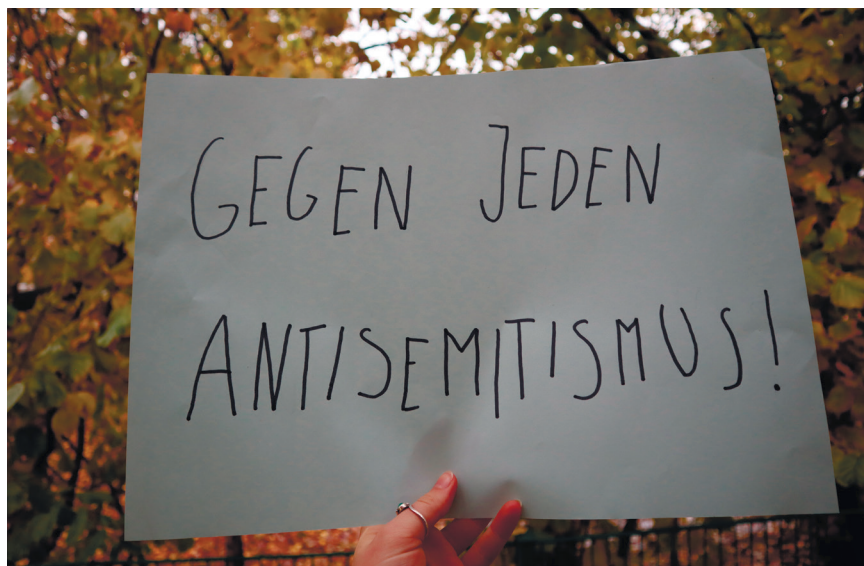 GEGEN JEDEN
ANTISEMITISMUS!